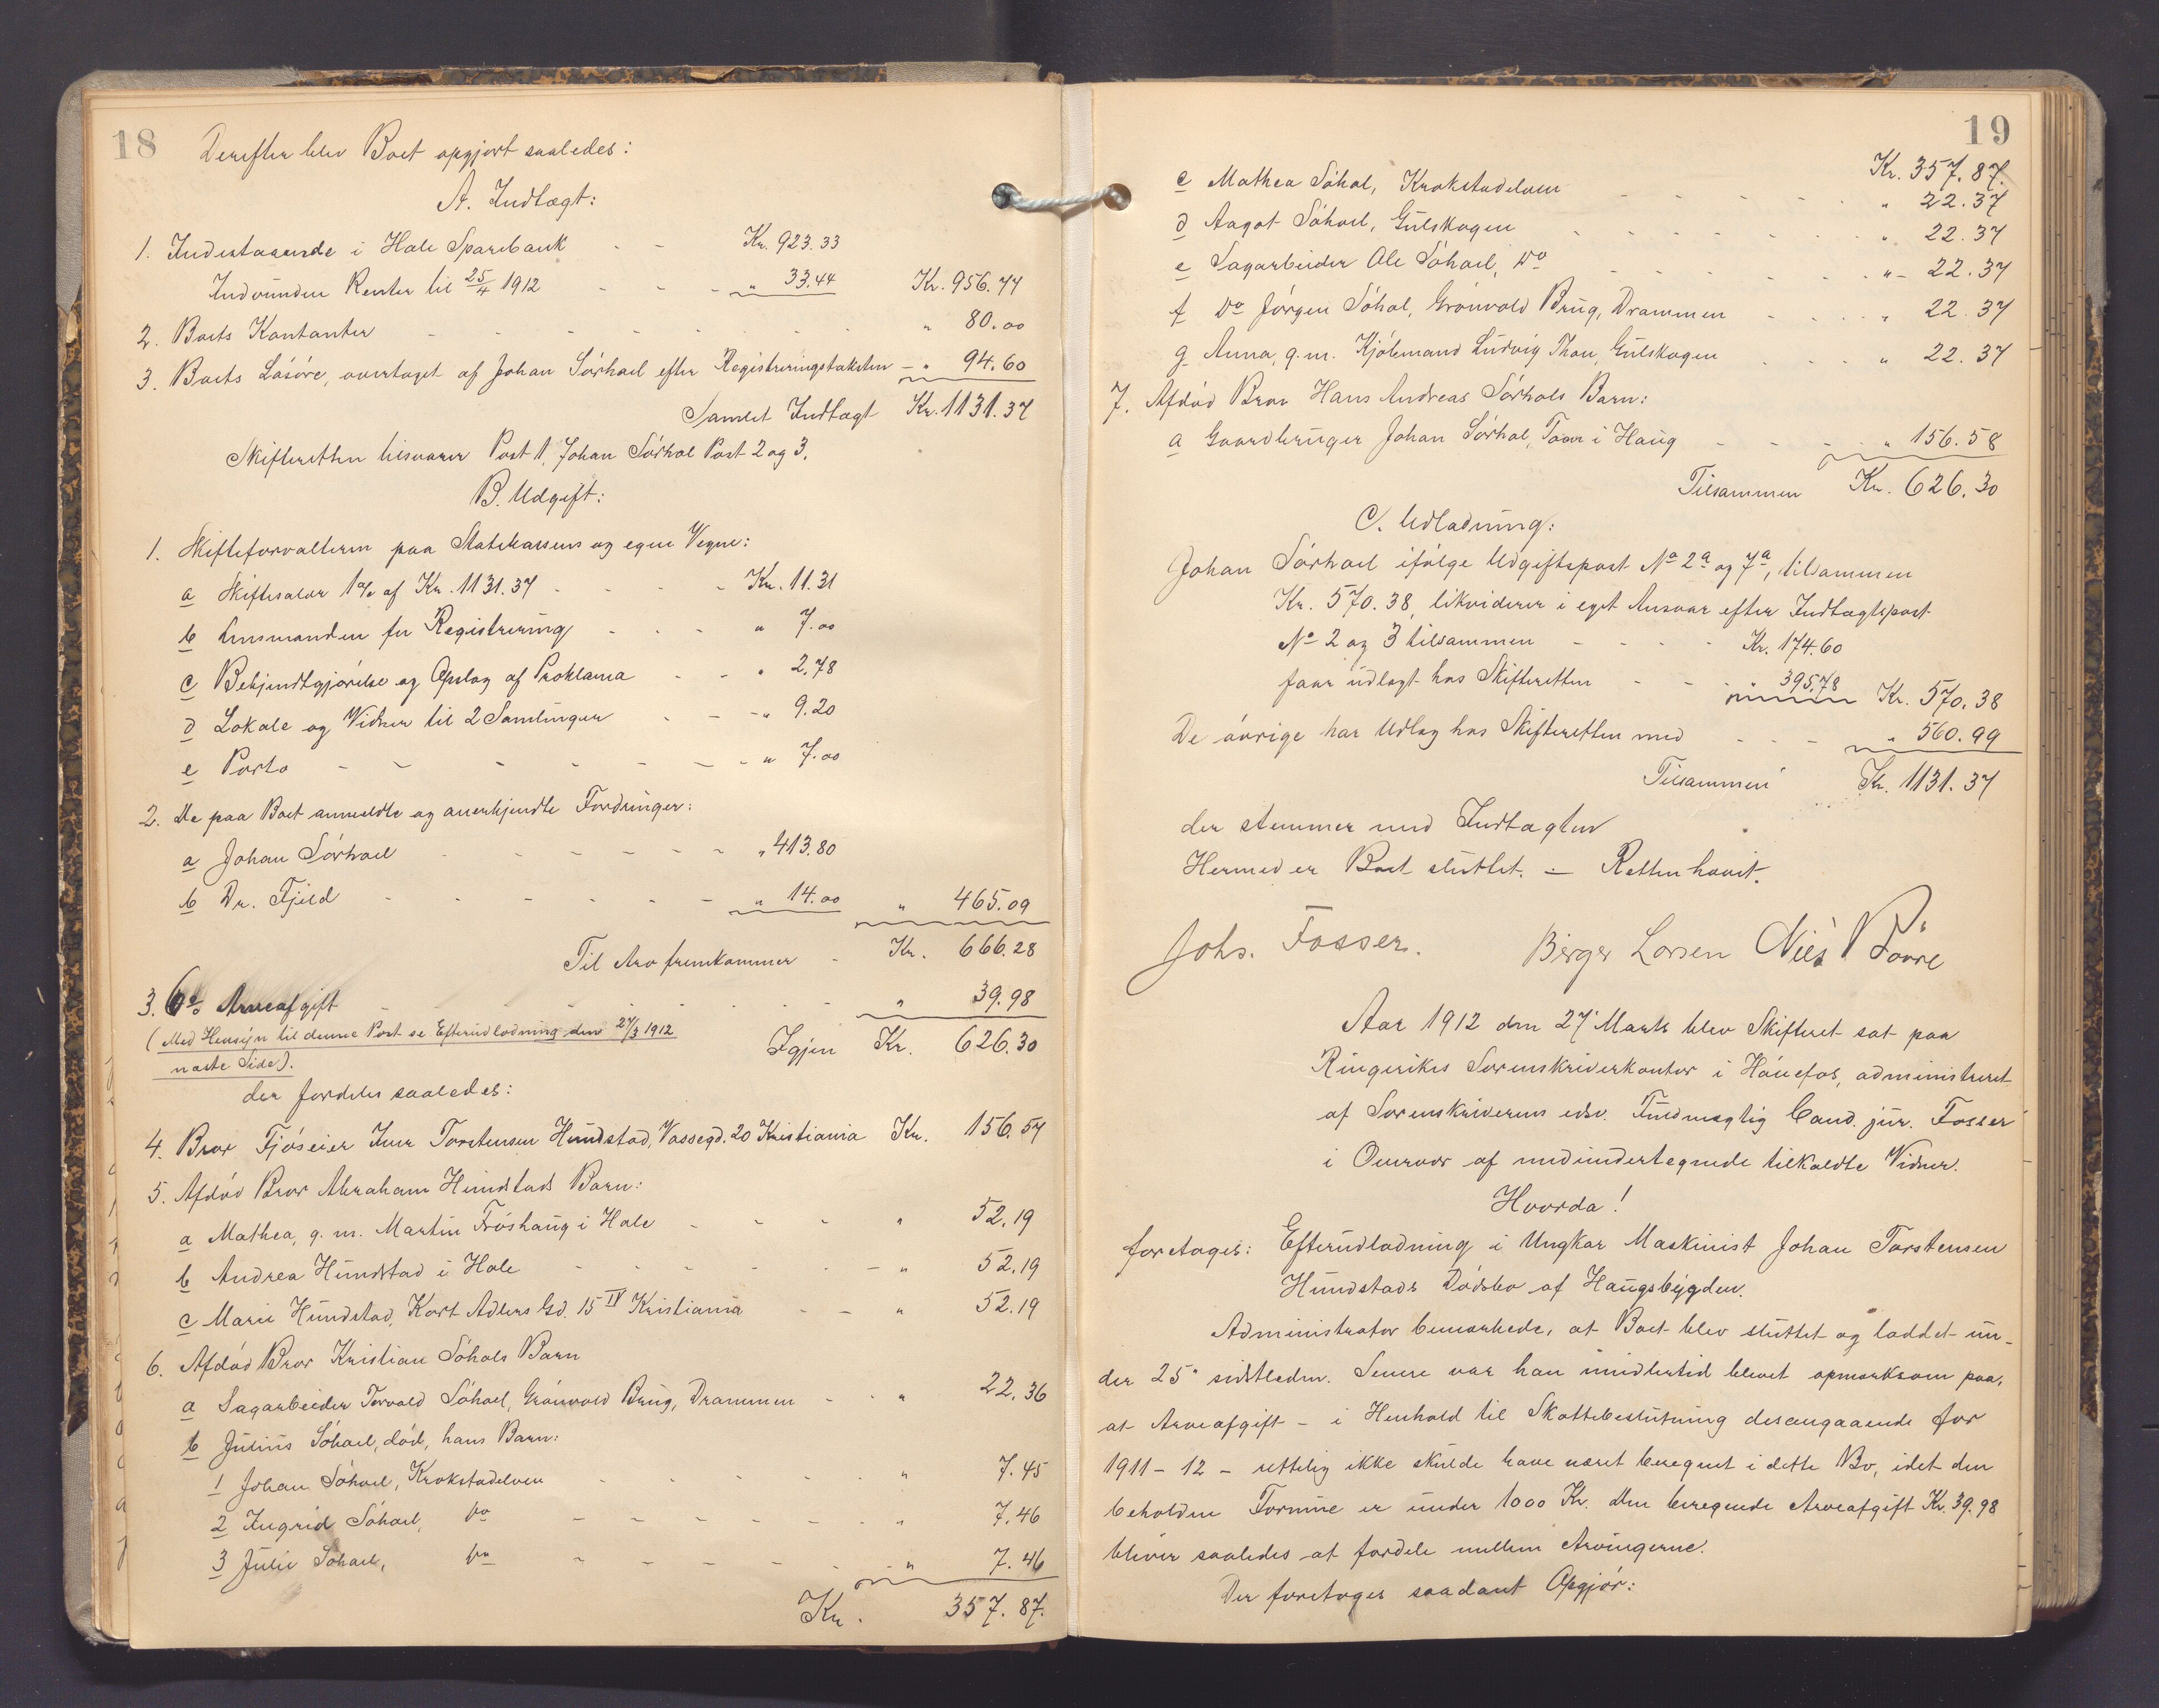 18
Derefter blev Boet opgjort saaledes:
A. Indtægt:
1. Indestaaende i Hole Sparebank - - Kr. 923.33
Indvundne Renter til 25/4 1912 - - - " 33.44 Kr. 956.77
2. Boets Kontanter - - - - - - - " 80.00
3. Boets Løsøre, overtaget af Johan Sørhoel efter Registreringstaksten - " 94.60
Samlet Indtægt Kr. 1131.37
Skifteretten tilsvarer Post 1, Johan Sørhol Post 2 og 3.
B. Udgift:
1. Skifteforvalteren paa Statskassens og egne Vegne:
a Skiftesalær 1% af Kr. 1131.37 - - - Kr. 11.31
b Lensmanden for Registrering - - - " 7.00
c Bekjendtgjørelse og Opslag af Proklama - - " 2.78
d Lokale og Vidner til 2 Samlinger - - - " 9.20
e Porto - - - - - - - " 7.00
2. De paa Boet anmeldte og anerkjendte Fordringer:
a Johan Sørhoel - - - - - - " 413.80
b Dr. Fjeld - - - - - - " 14.00 " 465.09
Til Arv fremkommer - Kr. 666.28
3. 6% Arveafgift - - - - - - - " 39.98
(Med Hensyn til denne Post se Efterudlodning den 27/3 1912
næste Side). Igjen Kr. 626.30
der fordeles saaledes:
4. Bror Fjøseier Iver Torstensen Hundstad, Vossegd. 20 Kristiania Kr. 156.57
5. Afdød Bror Abraham Hundstads Barn:
a Mathea, g. m. Martin Frøshaug i Hole - - - " 52.19
b Andrea Hundstad i Hole - - - - - " 52.19
c Marie Hundstad, Kort Adlers Gd. 15 IV Kristiania - - " 52.19
6. Afdød Bror Kristian Søhols Barn
a Sagarbeider Torvald Søhoel, Grønvold Brug, Drammen - - " 22.36
b Julius Søhoel, død, hans Barn:
1 Johan Søhoel, Krokstadelven - - - - - " 7.45
2 Ingrid Søhoel, do - - - - - - " 7.46
3 Julie Søhoel, do - - - - - - " 7.46
Kr. 357.87.
19
Kr. 357.87.
c Mathea Søhol, Krokstadelven - - - - - " 22.37
d Aagot Søhoel, Gulskogen - - - - - - " 22.37
e Sagarbeider Ole Søhoel, do - - - - - - " 22.37
f do Jørgen Søhol, Grønvold Brug, Drammen - - - " 22.37
g Anna, g. m. Kjølemand Ludvig Thon, Gulskogen - - - " 22.37
7. Afdød Bror Hans Andreas Sørhols Barn:
a Gaardbruger Johan Sørhol, Toen i Haug - - - - " 156.58
Tilsammen Kr. 626.30
C. Udlodning:
Johan Sørhoel ifølge Udgiftspost No 2a og 7a, tilsammen
Kr. 570.38, likviderer i eget Ansvar efter Indtægtspost
No 2 og 3 tilsammen - - - - Kr. 174.60
faar udlagt hos Skifteretten - - - " 395.78 Kr. 570.38
De øvrige har Udlæg hos Skifteretten med - - - " 560.99
Tilsammen Kr. 1131.37
der stemmer med Indtægten
Hermed er Boet sluttet. — Retten hævet.
Johs. Fosser. Birger Larsen Niels Bovre
Aar 1912 den 27' Marts blev Skifteret sat paa
Ringerikes Sorenskriverkontor i Hønefos, administreret
af Sorenskriverens edsv. Fuldmægtig Cand. jur. Fosser
i Overvær af medundertegnede tilkaldte Vidner.
Hvorda!
foretoges: Efterudlodning i Ungkar Maskinist Johan Torstensen
Hundstads Dødsbo af Haugsbygden.
Administrator bemærkede, at Boet blev sluttet og loddet un-
der 25' sidstleden. Senere var han imidlertid blevet opmærksom paa,
at Arveafgift - i Henhold til Skattebeslutning desangaaende for
1911-12 - rettelig ikke skulde have været beregnet i dette Bo, idet den
beholdne Formue er under 1000 Kr. Den beregnede Arveafgift Kr. 39.98
bliver saaledes at fordele mellem Arvingerne.
Der foretoges saadant Opgjør: